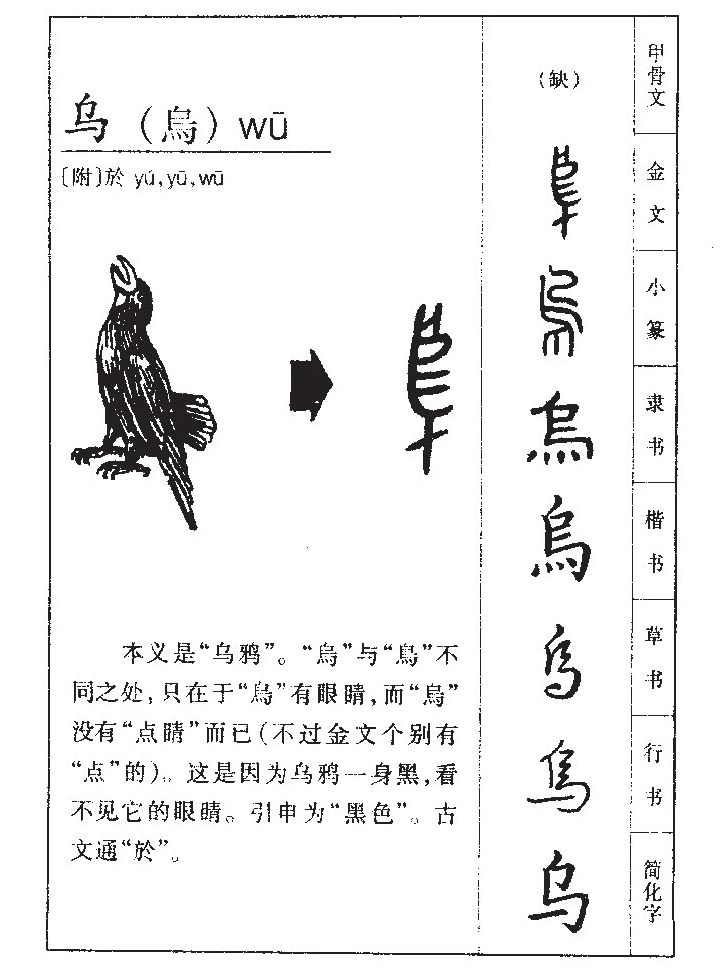 乌（烏）wū
〔附〕於 yú,yū,wū
本义是“乌鸦”。“烏”与“鳥”不
同之处,只在于“鳥”有眼睛,而“烏”
没有“点睛”而已(不过金文个别有
“点”的)。这是因为乌鸦一身黑,看
不见它的眼睛。引申为“黑色”。古
文通“於”。
（缺）
甲骨文
金文
小篆
烏
隶书
烏
楷书
草书
行书
乌
简化字